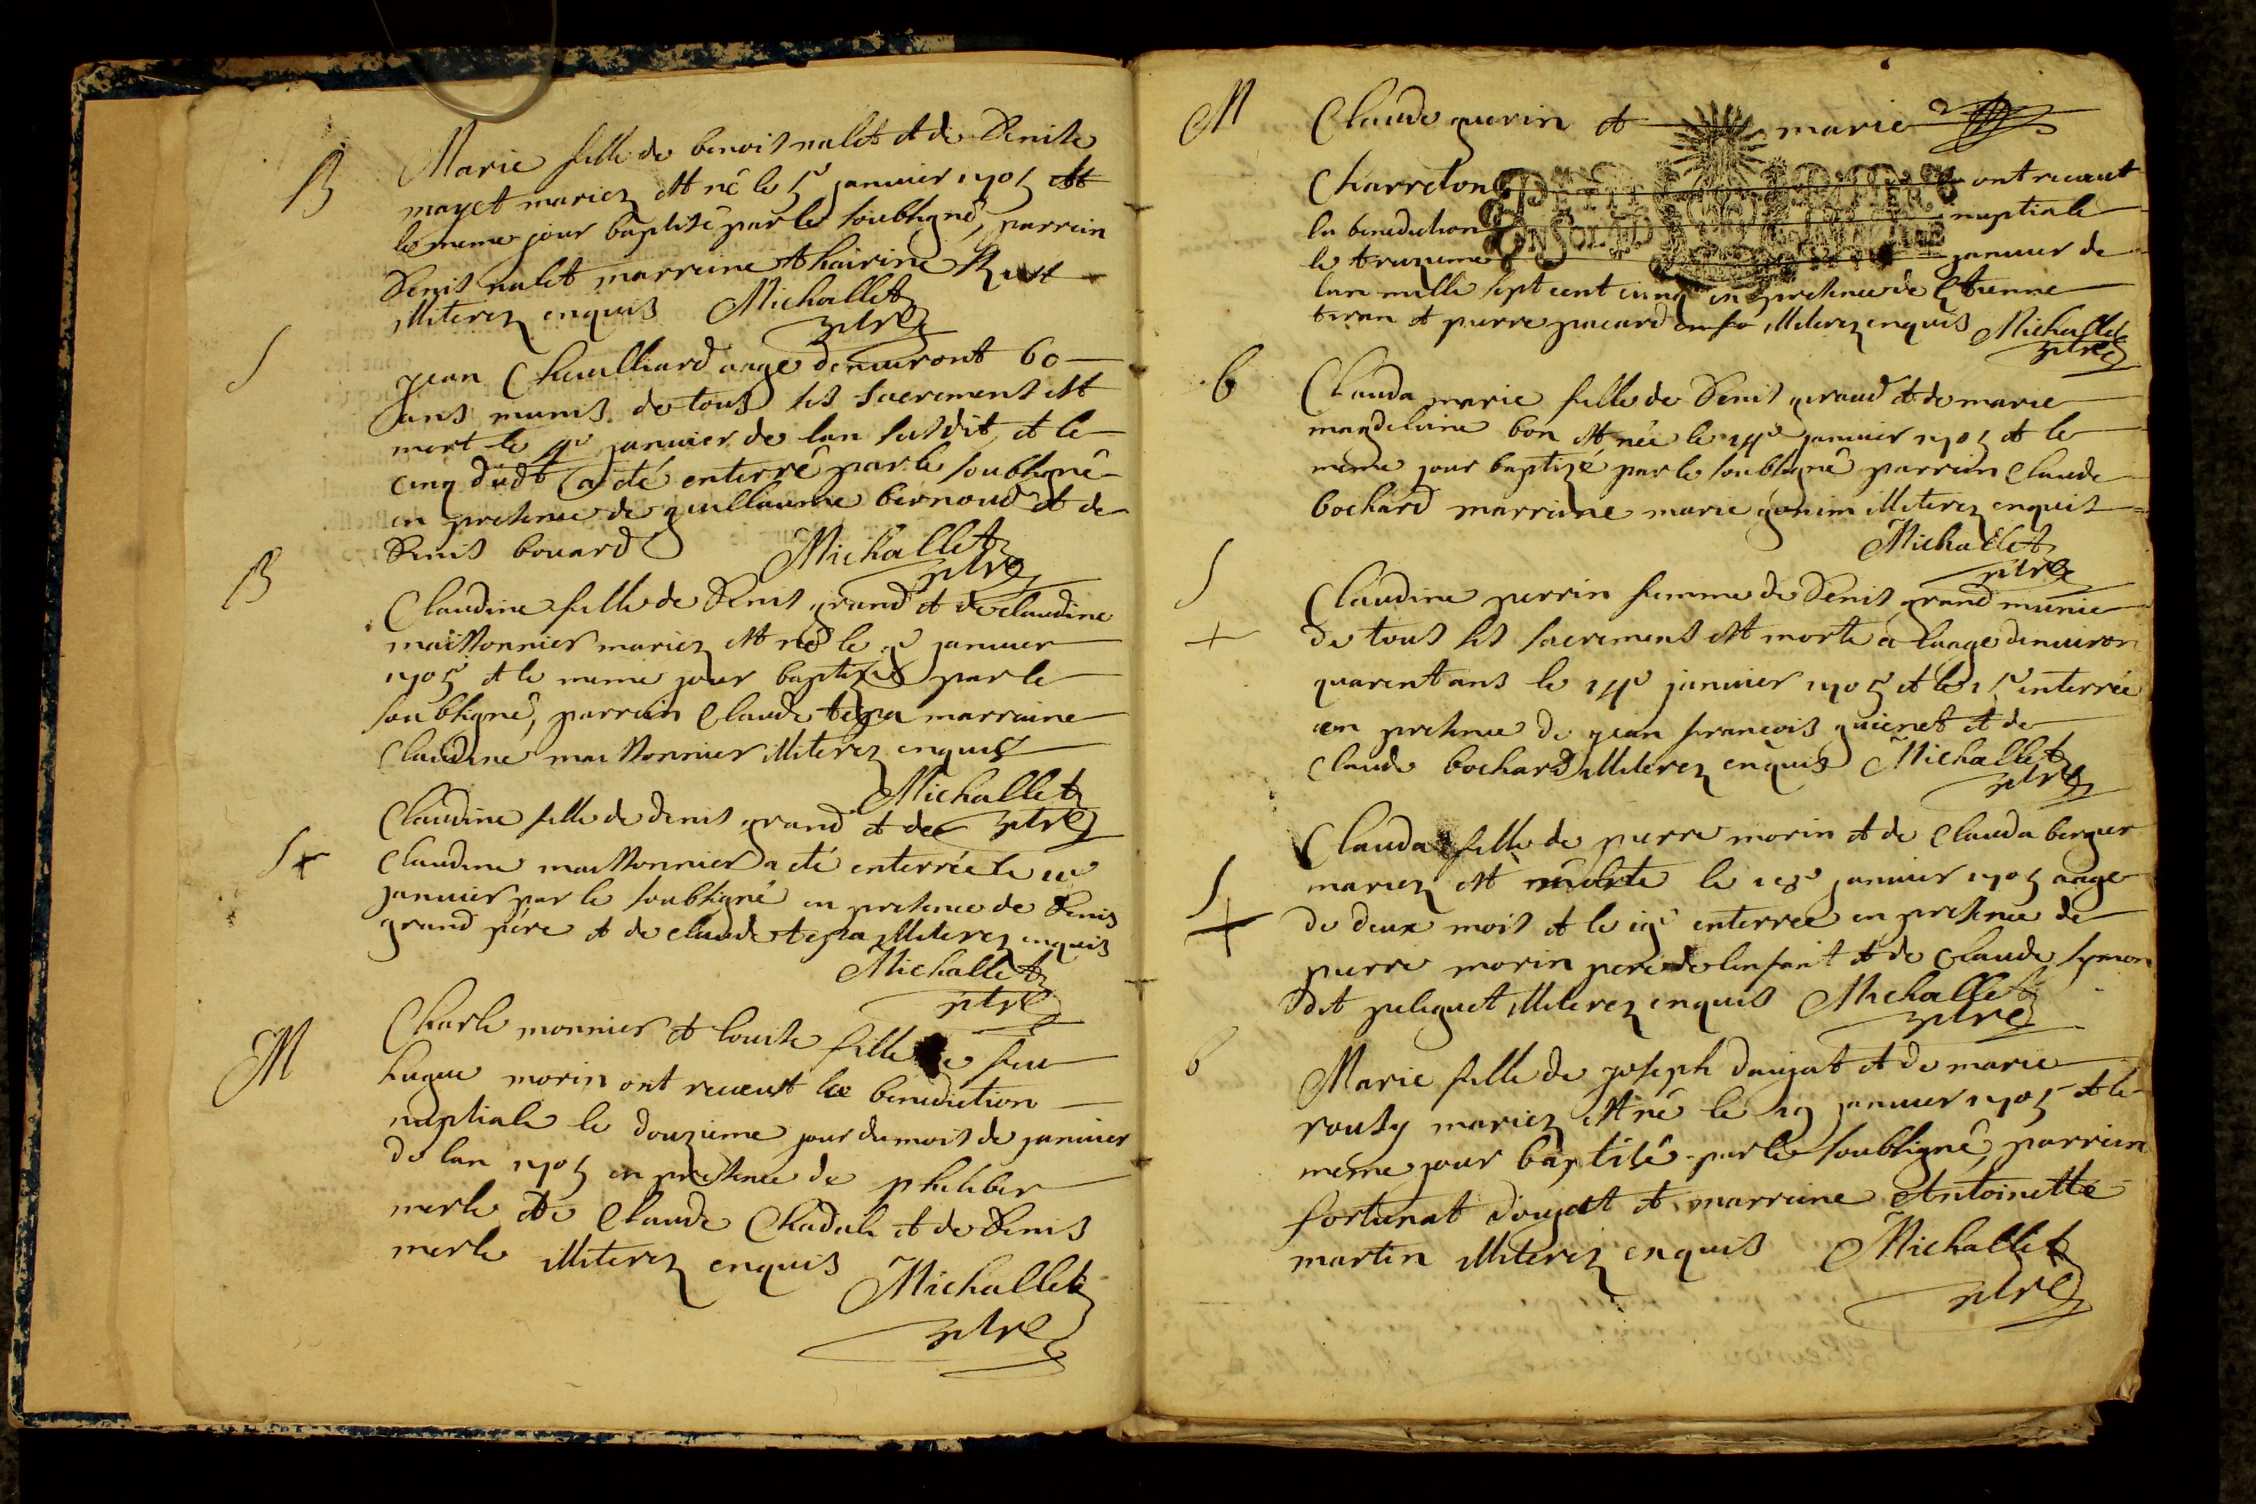 B
Marie fille de benoit nalet et de Denise
mayet mariez est né le 5e januier 1705 et
le meme jour baptisé par le soubsigné, parrein
Denis nalet marreine Cathairine
illiterez enquis Michallet
ptre
S
jean Chevilliard aage denuiront 60
ans munis de tous ses sacrement est
mort le 4e januier de lan susdit, et le
cinq dudt a eté enterré par le soubsigné
en presence de guillaume bernoud et de
Denis bouard Michallet
ptre
B
Claudine fille de Denis grand et de claudine
maissonnier mariez est né le januier
1705 et le meme jour baptizée par le
soubsigné, parrein Claude marraine
Claudine maissonnier illiterez enquis
Michallet
ptre
S +
Claudine fille de denis grand et de
claudine maissonnier a eté enterrée le 11e
januier par le soubsigné en presence de Denis
grand pére et de claude illiterez enquis
Michallet
ptre
M
Charle monnier et louise fille de feu
hugue morin ont receust la benediction
nuptiale le douzieme jour du mois de januier
de lan 1705 en presence de philiber
merle et de Claude Chadule et de Denis
merle illiterez enquis Michallet
ptre
M
Claude guerin et marie
Charreton ont receut
la benediction nuptiale
le trezieme januier de
lan mille sept cent cinq en presence de Etienne
teran et pierre pacard illiterez enquis Michallet
ptre
b
Clauda marie fille de Denis giraud et de marie
magdelaine bon est née le 14e januier 1705 et le
meme jour baptizé par le soubsigné parrein Claude
bochard marreine marie gonin illiterez enquis
Michallet
ptre
S
+
Claudine perrin femme de Denis grand munie
de tous ses sacrement est morte a laage denuiron
quarent ans le 14e januier 1705 et le 15e enterrée
en presence de jean françois guienet et de
Claude bochard illiterez enquis Michallet
ptre
S
+
Clauda fille de pierre morin et de Clauda berger
mariez est morte le 18e januier 1705 aage
de deux mois et le 19e enterree en presence de
pierre morin pere de lenfant et de Claude symon
dit peliguet illiterez enquis Michallet
ptre
b
Marie fille de joseph daujat et de marie
rousy mariez est né le 19 januier 1705 et le
meme jour baptisé par le soubsigné, parrein
fortunat doujat et marreine Antoinette
martin illiterez enquis Michallet
ptre